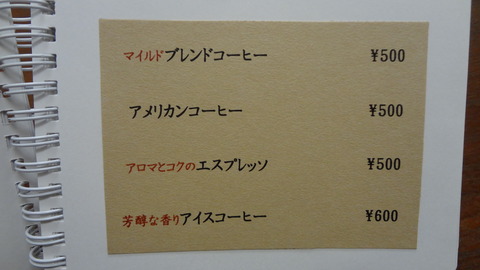 マイルドブレンドコーヒー ¥500
アメリカンコーヒー ¥500
アロマとコクのエスプレッソ ¥500
芳醇な香りアイスコーヒー ¥600